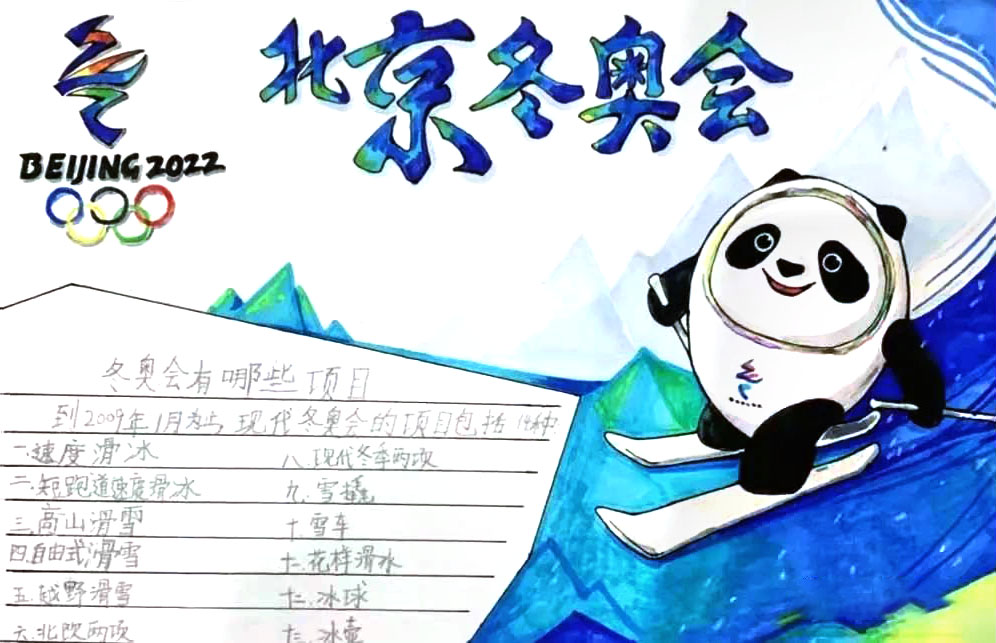 北京冬奥会
BEIJING 2022
冬奥会有哪些项目
到2009年1月为止 现代冬奥会的项目包括 14种
一.速度滑冰
八.现代冬季两项
二.短跑道速度滑冰
九.雪橇
三.高山滑雪
十.雪车
四.自由式滑雪
十一.花样滑冰
五.越野滑雪
十二.冰球
六.北欧两项
十三.冰壶